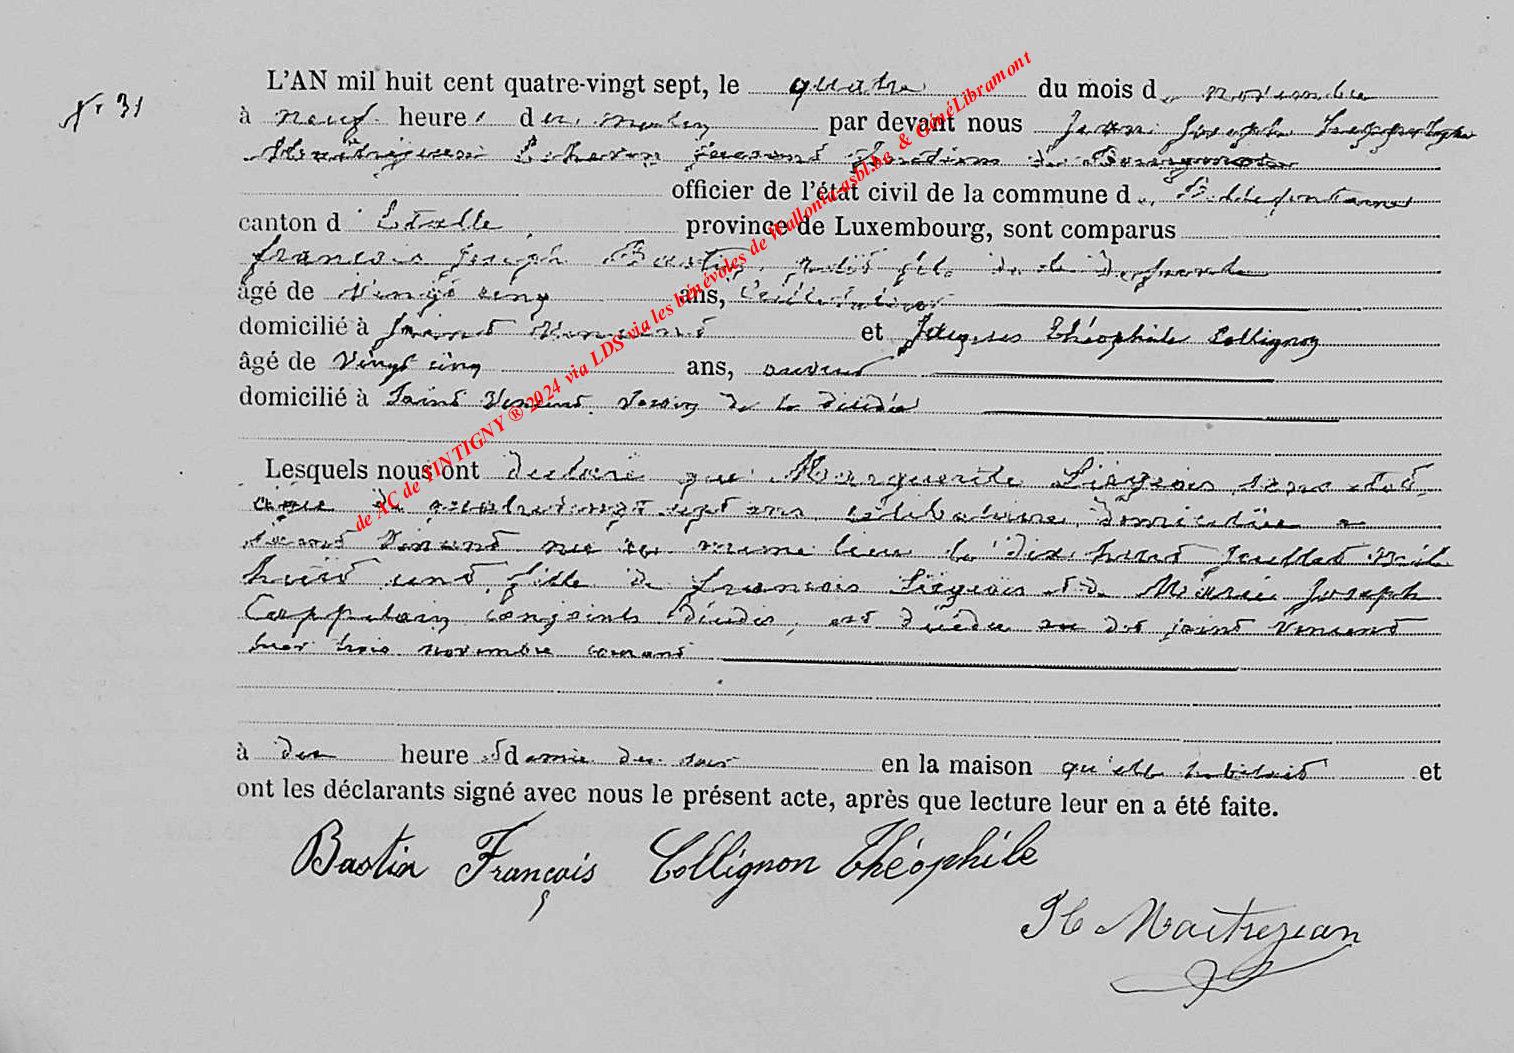 N° 31
L'AN mil huit cent quatre-vingt sept, le quatre du mois de novembre
à neuf heures du matin par devant nous Jean Joseph
Maitrejean Echevin faisant fonctions de Bourgmestre
officier de l'état civil de la commune de Bellefontaine
canton d'Etalle, province de Luxembourg, sont comparus
francois Joseph Bastin, petit fils de la defunte
âgé de vingt cinq ans, Cultivateur
domicilié à Saint Vincent et Jacques Théophile Collignon
âgé de vingt cinq ans, ouvrier
domicilié à Saint Vincent, voisin de la décédée
Lesquels nous ont declaré que Marguerite Liégeois sans etat,
agée de quatre vingt sept ans, célibataire, domiciliée a
saint Vincent née au meme lieu le dix huit juillet mil
huit cent, fille de francois Liégeois et de Marie Joseph
conjoints décédés, est décédée au dit saint Vincent
hier trois novembre courant
à dix heure et demie du soir en la maison qu'elle habitait et
ont les déclarants signé avec nous le présent acte, après que lecture leur en a été faite.
Bastin François Collignon Théophile
Maitrejean
de AC de TINTIGNY ® 2024 via LDS via les bénévoles de Wallonia-asbl.be & GénéLibramont